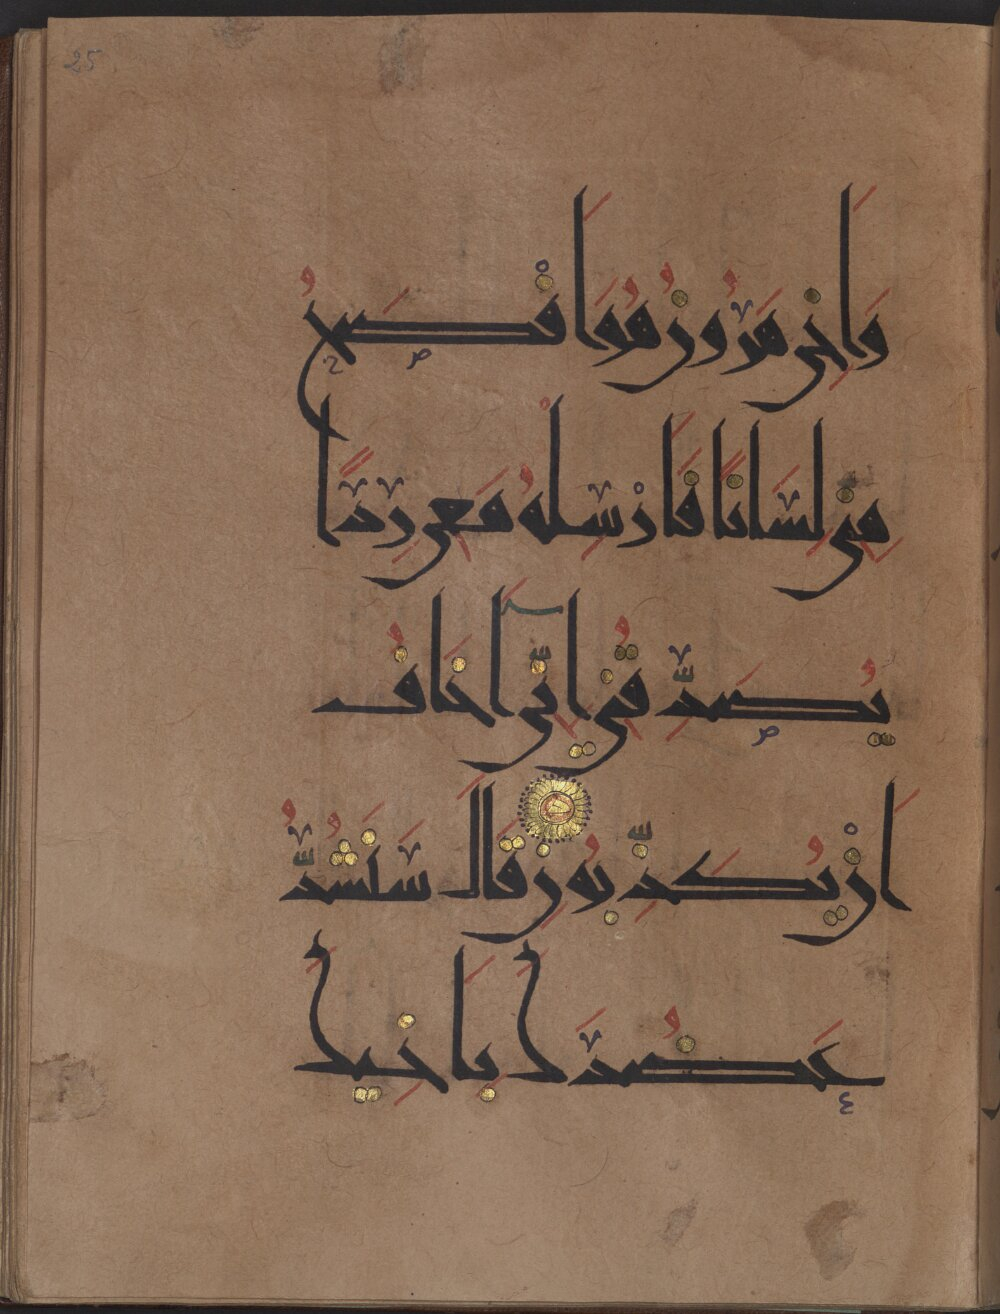 25
وَاَخِى هَرُونُ هُوَ اَفْصَحُ
مِنِّى لِسَانًا فَاَرْسِلْهُ مَعِىَ رِدْءًا
يُصَدِّقُنِى اِنِّىٓ اَخَافُ
اَنْ يُكَذِّبُونِ قَالَ سَنَشُدُّ
عَضُدَكَ بِاَخِيكَ